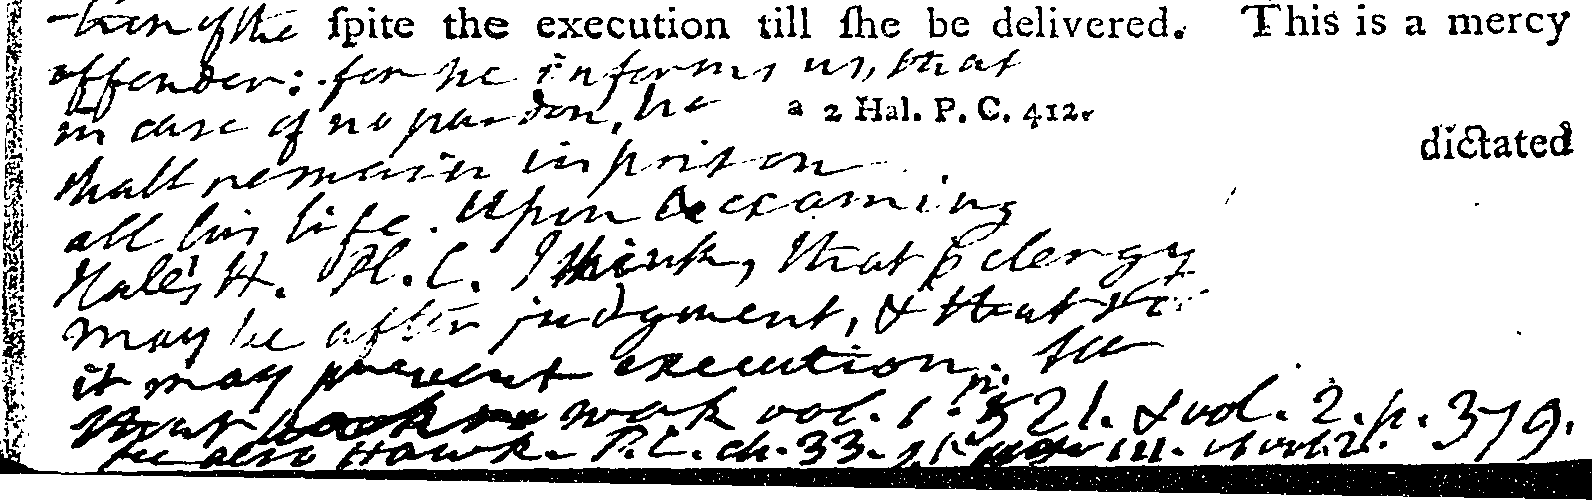 tion of the ſpite the execution till ſhe be delivered. This is a mercy
offender: for he informs us, that
in case of no pardon, he a 2 Hal. P. C. 412.
dictated
shall remain in prison
all his life. Upon examining
Hale's H. Pl. C. I think, that clergy
may be after judgment, & that
it may prevent execution. See
that work vol. 1. p. 521. & vol. 2. p. 379.
See also Hawk. P.C. ch. 33.